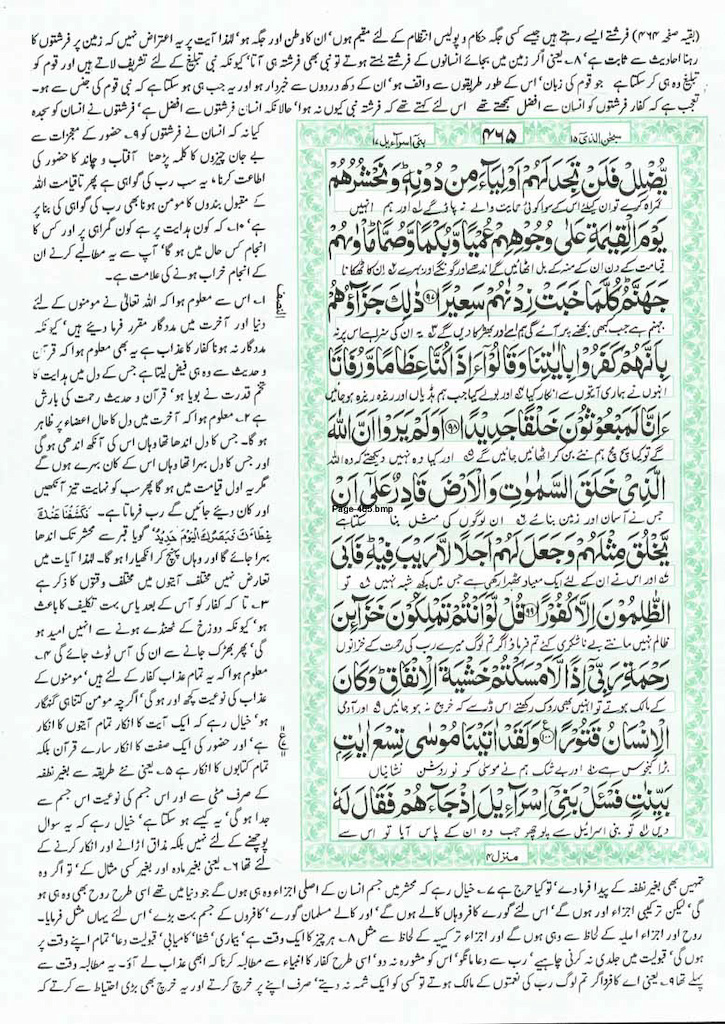 (بقیہ صفحہ ۴۶۴) فرشتے ایسے رہتے ہیں جیسے کسی جگہ حکام و پولیس انتظام کے لئے مقیم ہوں' ان کا وطن اور جگہ ہو' لہٰذا آیت پر یہ اعتراض نہیں کہ زمین پر فرشتوں کا
رہنا احادیث سے ثابت ہے' ۸۔ یعنی اگر زمین میں بجائے انسانوں کے فرشتے بستے ہوتے تو نبی بھی فرشتہ ہی آتا' کیونکہ نبی تبلیغ کے لئے تشریف لاتے ہیں اور قوم کو
تبلیغ وہ ہی کر سکتا ہے جو قوم کی زبان' اس کے طور طریقوں سے واقف ہو' ان کے دکھ دردوں سے خبردار ہو اور یہ جب ہی ہو سکتا ہے کہ نبی قوم کی جنس سے ہو۔
تعجب ہے کہ کفار فرشتوں کو انسان سے افضل سمجھتے تھے اس لئے کہتے تھے کہ فرشتہ نبی کیوں نہ ہوا' حالانکہ انسان فرشتوں سے افضل ہے' فرشتوں نے انسان کو سجدہ
کیا نہ کہ انسان نے فرشتوں کو ۹۔ حضور کے معجزات سے
بے جان چیزوں کا کلمہ پڑھنا آفتاب و چاند کا حضور کی
اطاعت کرنا، یہ سب رب کی گواہی ہے پھر تاقیامت اللہ
کے مقبول بندوں کا مومن ہونا بھی رب کی گواہی کی بنا پر
ہے' ۱۰۔ کہ کون ہدایت پر ہے کون گمراہی پر اور کس کا
انجام کس حال میں ہو گا' آپ سے یہ مطالبے کرنے ان
کے انجام خراب ہونے کی علامت ہے۔
۱۔ اس سے معلوم ہوا کہ اللہ تعالیٰ نے مومنوں کے لئے
دنیا اور آخرت میں مددگار مقرر فرما دیئے ہیں' کیونکہ
مددگار نہ ہونا کفار کا عذاب ہے یہ بھی معلوم ہوا کہ قرآن
و حدیث سے وہ ہی فیض لیتا ہے جس کے دل میں ہدایت کا
تخم قدرت نے بویا ہو' قرآن و حدیث رحمت کی بارش
ہے ۲۔ معلوم ہوا کہ آخرت میں دل کا حال اعضاء پر ظاہر
ہو گا۔ جس کا دل اندھا تھا وہاں اس کی آنکھ اندھی ہو گی
اور جس کا دل بہرا تھا وہاں اس کے کان بہرے ہوں گے
مگر یہ اول قیامت میں ہو گا پھر سب کو نہایت تیز آنکھیں
اور کان دیئے جائیں گے رب فرماتا ہے۔ فَكَشَفْنَا عَنْكَ
غِطَاءَكَ فَبَصَرُكَ الْيَوْمَ حَدِيدٌ' گویا قبر سے محشر تک اندھا
بہرا جائے گا اور وہاں پہنچ کر انکھیارا ہو گا۔ لہٰذا آیات میں
تعارض نہیں مختلف آیتوں میں مختلف وقتوں کا ذکر ہے
۳۔ تا کہ کفار کو آس کے بعد یاس بہت تکلیف کا باعث
ہو' کیونکہ دوزخ کے ٹھنڈے ہونے سے انہیں امید ہو
گی' پھر بھڑک جانے سے ان کی آس ٹوٹ جائے گی ۴۔
معلوم ہوا کہ یہ تمام عذاب کفار کے لئے ہیں' مومنوں کے
عذاب کی نوعیت کچھ اور ہو گی' اگرچہ مومن کتنا ہی گنہگار
ہو' خیال رہے کہ ایک آیت کا انکار تمام آیتوں کا انکار
ہے' اور حضور کی ایک صفت کا انکار سارے قرآن بلکہ
تمام کتابوں کا انکار ہے ۵۔ یعنی نئے طریقہ سے بغیر نطفہ
کے صرف مٹی سے اور اس جسم کی نوعیت اس جسم سے
جدا ہو گی' یہ کیسے ہو سکتا ہے' خیال رہے کہ یہ سوال
پوچھنے کے لئے نہیں بلکہ مذاق اڑانے اور انکار کرنے کے
لئے تھا ۶۔ یعنی بغیر مادہ اور بغیر کسی مثال کے' تو اگر وہ
النصف
ع
سبحٰن الذی ۱۵ ۴۶۵ بنی اسراءیل ۱۷
يُّضْلِلْ فَلَنْ تَجِدَ لَهُمْ اَوْلِيَآءَ مِنْ دُوْنِهٖ وَنَحْشُرُهُمْ
گمراہ کرے تو ان کیلئے اس کے سوا کوئی حمایت والے نہ پاؤ گے اور ہم انہیں
يَوْمَ الْقِيٰمَةِ عَلٰى وُجُوْهِهِمْ عُمْيًا وَّبُكْمًا وَّصُمًّا مَاْوٰىهُمْ
قیامت کے دن ان کے منہ کے بل اٹھائیں گے اندھے اور گونگے اور بہرے ان کا ٹھکانا
جَهَنَّمُ كُلَّمَا خَبَتْ زِدْنٰهُمْ سَعِيْرًا ۹۷ ذٰلِكَ جَزَآؤُهُمْ
جہنم ہے جب کبھی بجھنے پر آئے گی ہم اسے اور بھڑکا دیں گے یہ ان کی سزا ہے اس پر کہ
بِاَنَّهُمْ كَفَرُوْا بِاٰيٰتِنَا وَقَالُوْٓا ءَاِذَا كُنَّا عِظَامًا وَّرُفَاتًا
انہوں نے ہماری آیتوں سے انکار کیا اور بولے کیا جب ہم ہڈیاں اور ریزہ ریزہ ہو جائیں
ءَاِنَّا لَمَبْعُوْثُوْنَ خَلْقًا جَدِيْدًا ۹۸ اَوَلَمْ يَرَوْا اَنَّ اللّٰهَ
گے تو کیا سچ مچ ہم نئے بن کر اٹھائے جائیں گے اور کیا وہ نہیں دیکھتے کہ وہ اللہ
الَّذِيْ خَلَقَ السَّمٰوٰتِ وَالْاَرْضَ قَادِرٌ عَلٰٓى اَنْ
Page-465.bmp
جس نے آسمان اور زمین بنائے ان لوگوں کی مثل بنا سکتا ہے
يَّخْلُقَ مِثْلَهُمْ وَجَعَلَ لَهُمْ اَجَلًا لَّا رَيْبَ فِيْهِ فَاَبَى
اور اس نے ان کے لئے ایک میعاد ٹھہرا رکھی ہے جس میں کچھ شبہ نہیں تو
الظّٰلِمُوْنَ اِلَّا كُفُوْرًا ۹۹ قُلْ لَّوْ اَنْتُمْ تَمْلِكُوْنَ خَزَآئِنَ
ظالم نہیں مانتے بے ناشکری کئے تم فرماؤ اگر تم لوگ میرے رب کی رحمت کے خزانوں
رَحْمَةِ رَبِّيْٓ اِذًا لَّاَمْسَكْتُمْ خَشْيَةَ الْاِنْفَاقِ وَكَانَ
کے مالک ہوتے تو انہیں بھی روک رکھتے اس ڈر سے کہ خرچ نہ ہو جائیں اور آدمی
الْاِنْسَانُ قَتُوْرًا ۱۰۰ وَلَقَدْ اٰتَيْنَا مُوْسٰى تِسْعَ اٰيٰتٍ
بڑا کنجوس ہے اور بے شک ہم نے موسیٰ کو نو روشن نشانیاں
بَيِّنٰتٍ فَسْـَٔلْ بَنِيْٓ اِسْرَآءِيْلَ اِذْ جَآءَهُمْ فَقَالَ لَهٗ
دیں تو بنی اسرائیل سے پوچھو جب وہ ان کے پاس آیا تو اس سے
منزل ۴
تمہیں بھی بغیر نطفہ کے پیدا فرما دے' تو کیا حرج ہے ۷۔ خیال رہے کہ محشر میں جسم انسان کے اصلی اجزاء وہ ہی ہوں گے جو دنیا میں تھے اسی طرح روح بھی وہ ہی ہو
گی' لیکن ترکیبی اجزاء اور ہوں گے' اس لئے گورے کافر وہاں کالے ہوں گے' اور کالے مسلمان گورے' کافروں کے جسم بہت بڑے' اس لئے یہاں مثل فرمایا۔
روح اور اجزاء اصلیہ کے لحاظ سے وہی ہوں گے اور اجزاء ترکیبیہ کے لحاظ سے مثل ۸۔ ہر چیز کا ایک وقت ہے' بیماری' شفا' کامیابی' قبولیت دعا' تمام اپنے وقت پر
ہوں گی' قبولیت میں جلدی نہ کرنی چاہیے' رب سے دعا مانگو' اس کو مشورہ نہ دو' اسی طرح کفار کا انبیاء سے مطالبہ کرنا کہ ابھی عذاب لے آؤ۔ یہ مطالبہ وقت سے
پہلے تھا ۹۔ یعنی اے کافرو اگر تم لوگ رب کی نعمتوں کے مالک ہوتے تو کسی کو ایک شمہ نہ دیتے' صرف اپنے پر خرچ کرتے اور یہ خرچ بھی بڑی احتیاط سے کرتے کہ